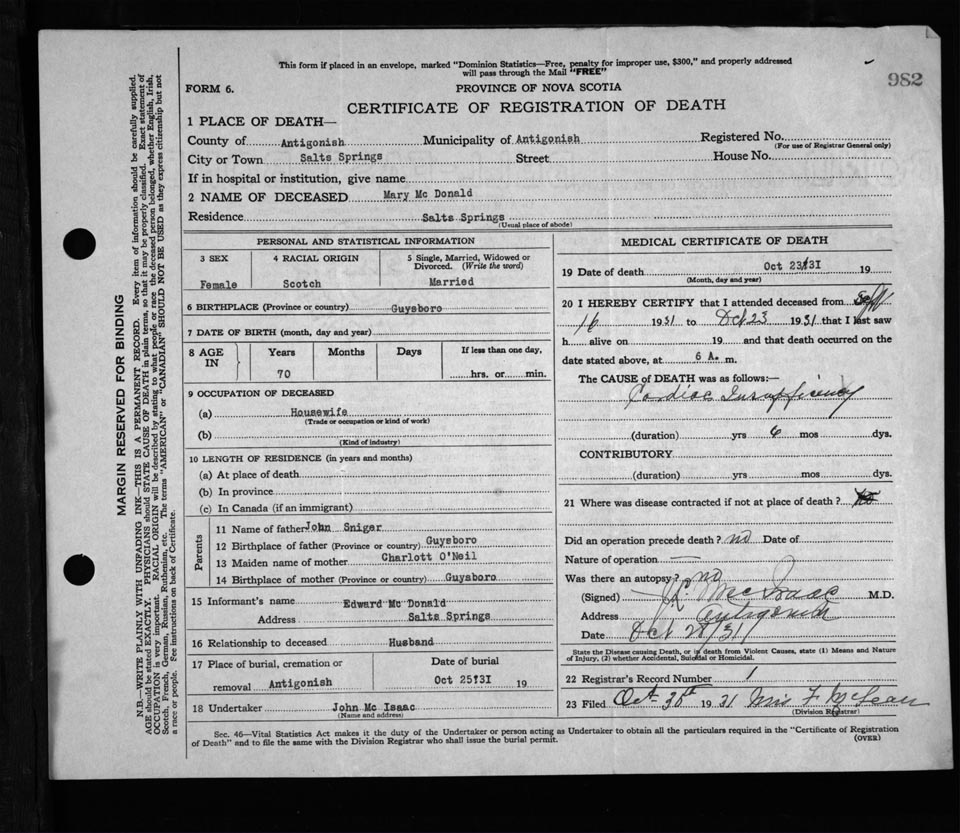 This form if placed in an envelope, marked "Dominion Statistics—Free, penalty for improper use, $300," and properly addressed
will pass through the Mail "FREE"
982
FORM 6.
PROVINCE OF NOVA SCOTIA
CERTIFICATE OF REGISTRATION OF DEATH
1 PLACE OF DEATH—
County of Antigonish Municipality of Antigonish Registered No.
(For use of Registrar General only)
City or Town Salts Springs Street House No.
If in hospital or institution, give name
2 NAME OF DECEASED Mary Mc Donald
Residence Salts Springs
(Usual place of abode)
PERSONAL AND STATISTICAL INFORMATION
3 SEX 4 RACIAL ORIGIN 5 Single, Married, Widowed or
Divorced. (Write the word)
Female Scotch Married
6 BIRTHPLACE (Province or country) Guysboro
7 DATE OF BIRTH (month, day and year)
8 AGE IN Years Months Days If less than one day,
70 hrs. or min.
9 OCCUPATION OF DECEASED
(a) Housewife
(Trade or occupation or kind of work)
(b)
(Kind of industry)
10 LENGTH OF RESIDENCE (in years and months)
(a) At place of death
(b) In province
(c) In Canada (if an immigrant)
Parents
11 Name of father John Sniger
12 Birthplace of father (Province or country) Guysboro
13 Maiden name of mother Charlott O'Neil
14 Birthplace of mother (Province or country) Guysboro
15 Informant's name Edward Mc Donald
Address Salts Springs
16 Relationship to deceased Husband
17 Place of burial, cremation or Date of burial
removal Antigonish Oct 25'31 19
18 Undertaker John Mc Isaac
(Name and address)
MEDICAL CERTIFICATE OF DEATH
19 Date of death Oct 23/31 19
(Month, day and year)
20 I HEREBY CERTIFY that I attended deceased from Sept
16 1931 to Oct 23 1931 that I last saw
h alive on 19 and that death occurred on the
date stated above, at 6 A. m.
The CAUSE OF DEATH was as follows:—
Cardiac Insufficiency
(duration) yrs 6 mos dys.
CONTRIBUTORY
(duration) yrs mos dys.
21 Where was disease contracted if not at place of death?
Did an operation precede death? no Date of
Nature of operation —
Was there an autopsy? no
(Signed) McIsaac M.D.
Address Antigonish
Date Oct 28/31
State the Disease causing Death, or in death from Violent Causes, state (1) Means and Nature
of Injury, (2) whether Accidental, Suicidal or Homicidal.
22 Registrar's Record Number 1
23 Filed Oct 30th 1931 Mrs F McLean
(Division Registrar)
Sec. 46—Vital Statistics Act makes it the duty of the Undertaker or person acting as Undertaker to obtain all the particulars required in the "Certificate of Registration
of Death" and to file the same with the Division Registrar who shall issue the burial permit.
(OVER)
MARGIN RESERVED FOR BINDING
N.B.—WRITE PLAINLY WITH UNFADING INK—THIS IS A PERMANENT RECORD. Every item of information should be carefully supplied.
AGE should be stated EXACTLY. PHYSICIANS should STATE CAUSE OF DEATH in plain terms, so that it may be properly classified. Exact statement of
OCCUPATION is very important. RACIAL ORIGIN will be described by stating to what people or race the deceased person belonged, whether English, Irish,
Scotch, French, German, Russian, Ruthenian, etc. The terms "AMERICAN" or "CANADIAN" SHOULD NOT BE USED as they express citizenship but not
a race or people. See instructions on back of Certificate.